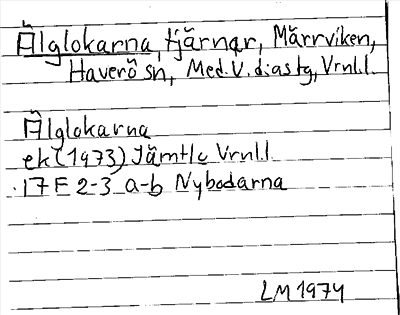 Älglokarna, tjärnar, Märrviken,
Haverö sn, Med.V. diastg, Vrnl.l.
Älglokarna
ek (1973) Jämtlc Vrnl.l
17 E 2-3 a-b Nybodarna
LM 1974